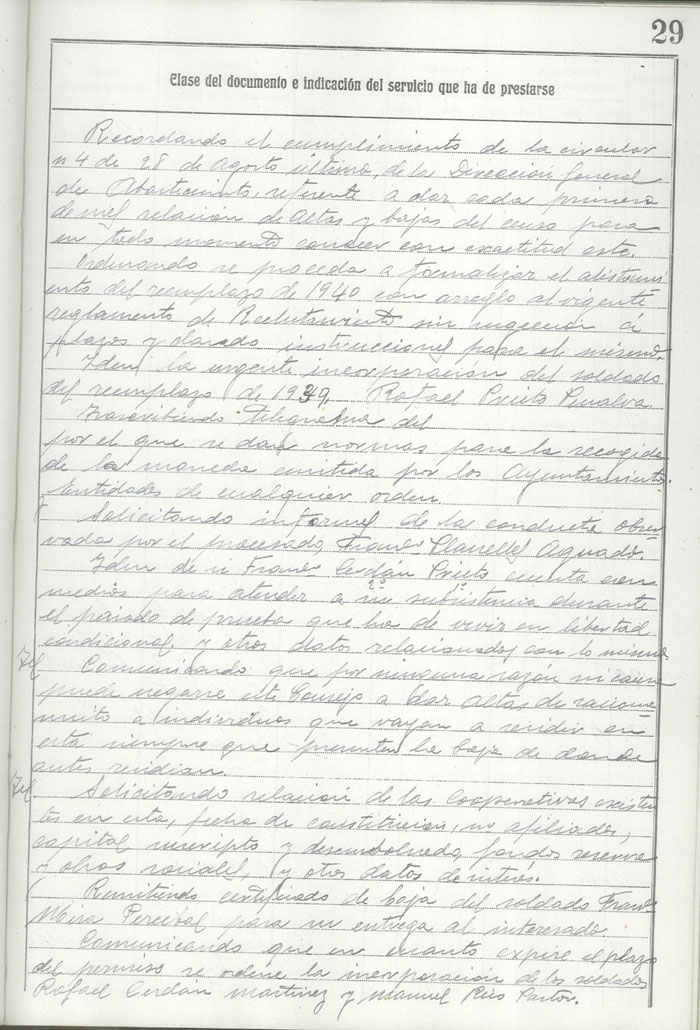 29
Clase del documento e indicación del servicio que ha de prestarse
Recordando el cumplimiento de la circular
nº 4 de 28 de Agosto último, de la Dirección General
de Abastecimto, referente a dar cada primero
de mes relación de altas y bajas del censo para
en todo momento conocer con exactitud este.
Ordenando se proceda a formalizar el alistami
ento del reemplazo de 1940 con arreglo al vigente
reglamento de Reclutamiento sin sugeción á
plazos y dando instrucciones para el mismo.
Iden la urgente incorporación del soldado
del reemplazo de 1939, Rafael Prieto Penalva.
Trascribiendo telegrama del
por el que se dan normas para la recogida
de la moneda emitida por los Ayuntamientos.
Entidades de cualquier orden
Solicitando informes de la conducta obser
vada por el procesado, Franco Llanelles Aguado.
Iden de si Franco Cerdán Prieto cuenta con
medios para atender a su subsistencia durante
el periodo de prueba que ha de vivir en libertad
condicional, y otros datos relacionados con lo mismo
Tel Comunicando que por ninguna razón ni causa
puede negarse este Consejo a dar altas de raciona
miento a individuos que vayan a residir en
esta siempre que presenten la baja de donde
antes residian.
Tel. Solicitando relación de las Cooperativas existen
tes en esta, fecha de constitución, no afiliados,
capital suscripto y desembolsado, fondos reserva
y obras sociales, y otros datos de interés.
Remitiendo certificado de baja del soldado Franco
Mira Perceval para su entrega al interesado.
Comunicando que en cuanto expire el plazo
del permiso se ordene la incorporación de los soldados
Rafael Cerdán Martinez y Manuel Rico Pastor.